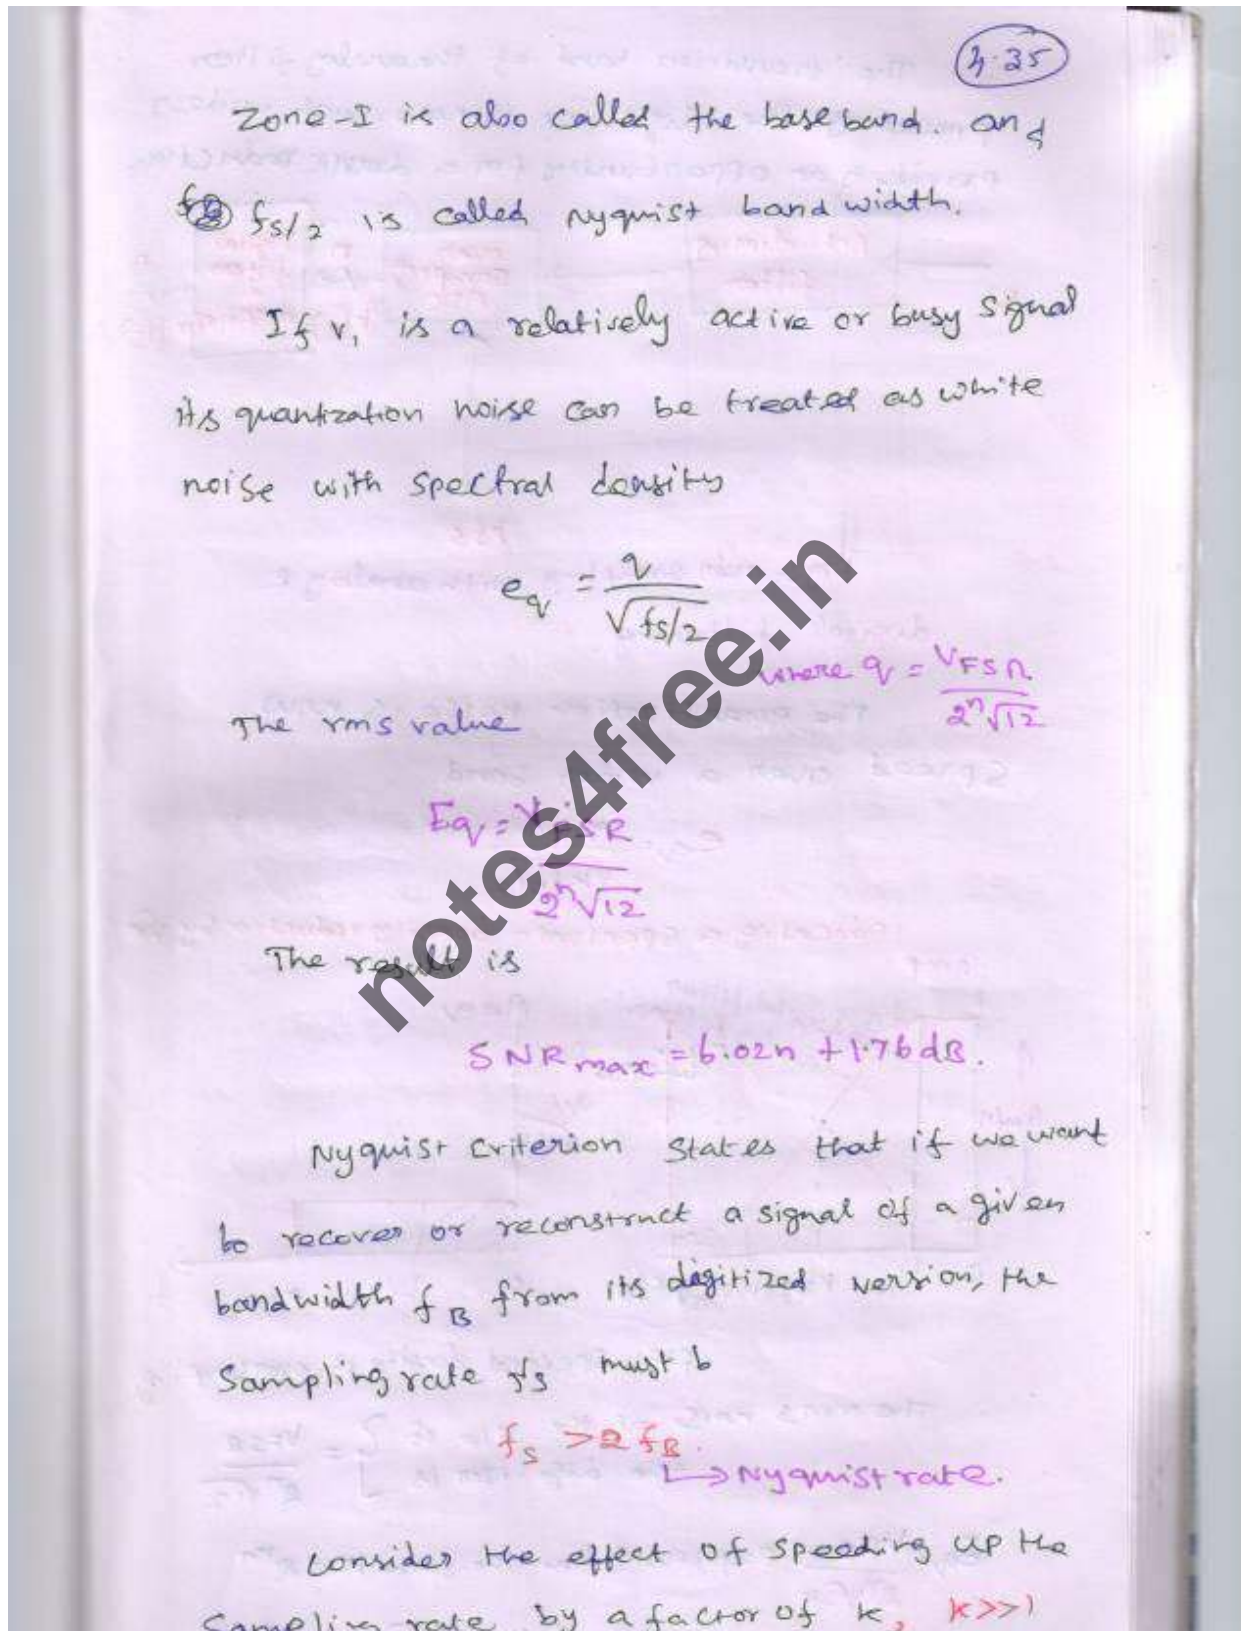 4.35
Zone-I is also called the baseband. and
fs/2 is called Nyquist bandwidth.
If v1 is a relatively active or busy signal
its quantization noise can be treated as white
noise with spectral density
eq = q / √fs/2
where q = VFSR / 2^n √12
The rms value
Eq = VFSR / 2^n √12
The result is
SNR max = 6.02n + 1.76 dB.
Nyquist Criterion states that if we want
to recover or reconstruct a signal of a given
bandwidth fB from its digitized version, the
Sampling rate fs must b
fs > 2 fB.
↳ Nyquist rate.
Consider the effect of speeding up the
Sampling rate by a factor of k, k>>1
notes4free.in